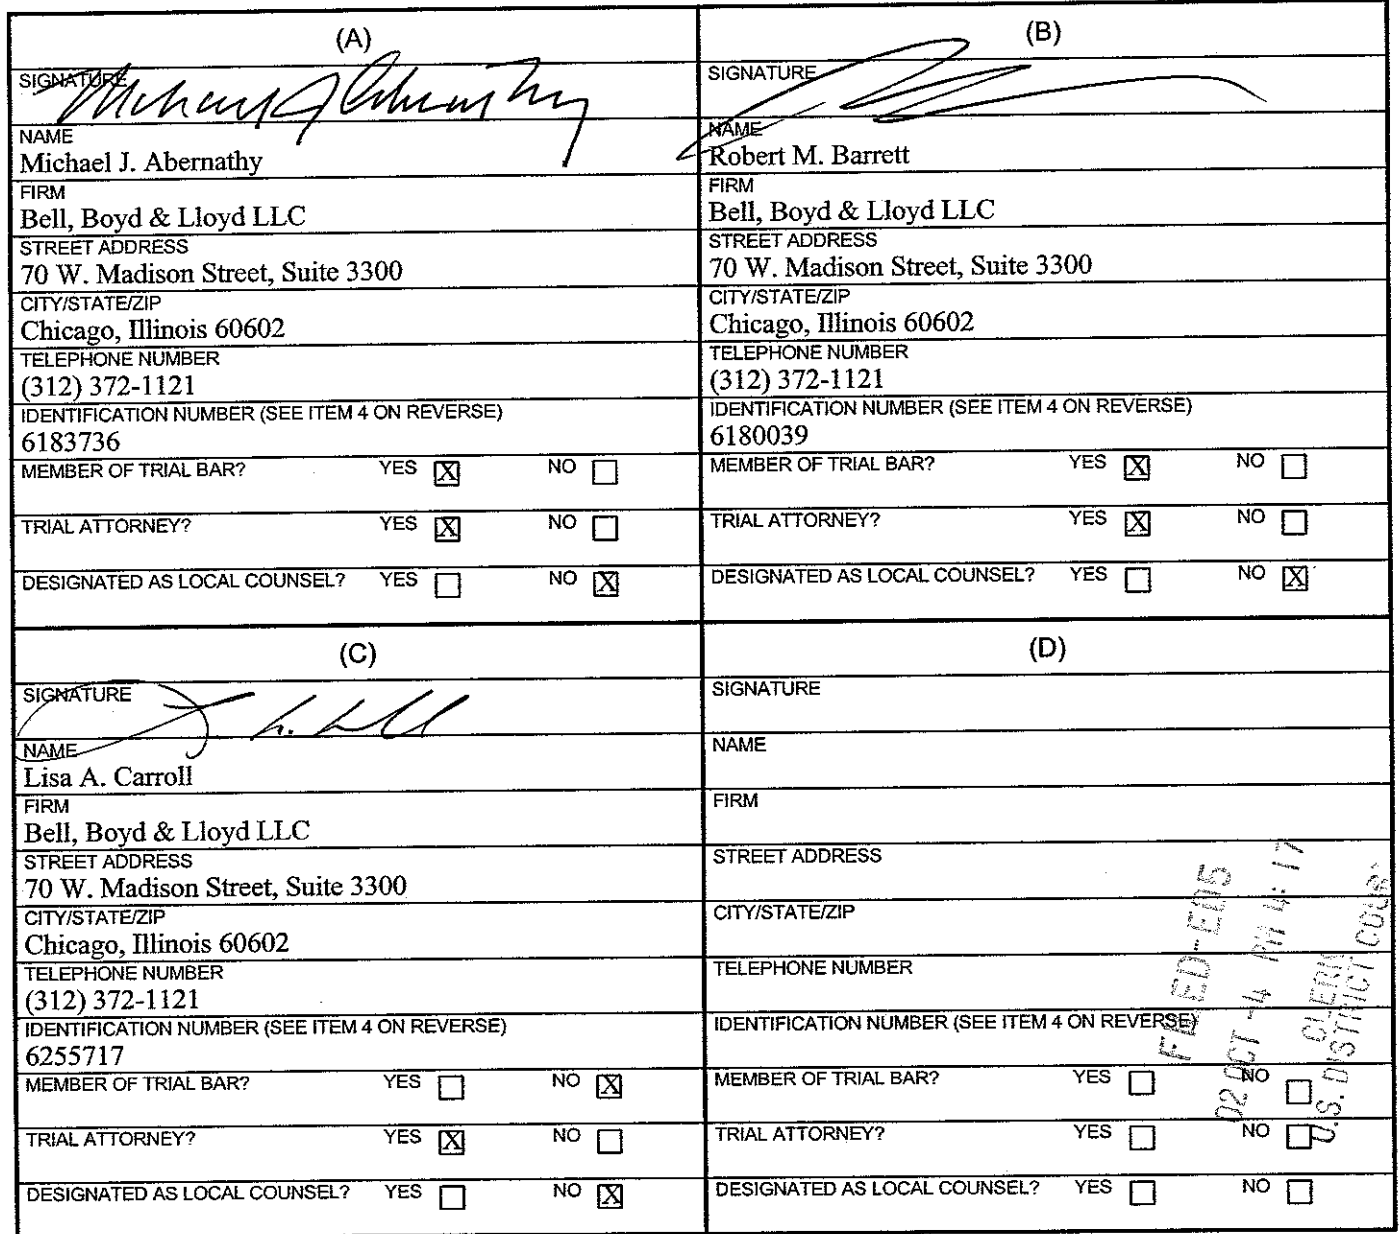 (A)
SIGNATURE
NAME
Michael J. Abernathy
FIRM
Bell, Boyd & Lloyd LLC
STREET ADDRESS
70 W. Madison Street, Suite 3300
CITY/STATE/ZIP
Chicago, Illinois 60602
TELEPHONE NUMBER
(312) 372-1121
IDENTIFICATION NUMBER (SEE ITEM 4 ON REVERSE)
6183736
MEMBER OF TRIAL BAR? YES X NO
TRIAL ATTORNEY? YES X NO
DESIGNATED AS LOCAL COUNSEL? YES NO X
(B)
SIGNATURE
NAME
Robert M. Barrett
FIRM
Bell, Boyd & Lloyd LLC
STREET ADDRESS
70 W. Madison Street, Suite 3300
CITY/STATE/ZIP
Chicago, Illinois 60602
TELEPHONE NUMBER
(312) 372-1121
IDENTIFICATION NUMBER (SEE ITEM 4 ON REVERSE)
6180039
MEMBER OF TRIAL BAR? YES X NO
TRIAL ATTORNEY? YES X NO
DESIGNATED AS LOCAL COUNSEL? YES NO X
(C)
SIGNATURE
NAME
Lisa A. Carroll
FIRM
Bell, Boyd & Lloyd LLC
STREET ADDRESS
70 W. Madison Street, Suite 3300
CITY/STATE/ZIP
Chicago, Illinois 60602
TELEPHONE NUMBER
(312) 372-1121
IDENTIFICATION NUMBER (SEE ITEM 4 ON REVERSE)
6255717
MEMBER OF TRIAL BAR? YES NO X
TRIAL ATTORNEY? YES X NO
DESIGNATED AS LOCAL COUNSEL? YES NO X
(D)
SIGNATURE
NAME
FIRM
STREET ADDRESS
CITY/STATE/ZIP
TELEPHONE NUMBER
IDENTIFICATION NUMBER (SEE ITEM 4 ON REVERSE)
MEMBER OF TRIAL BAR? YES NO
TRIAL ATTORNEY? YES NO
DESIGNATED AS LOCAL COUNSEL? YES NO
FILED-ED5
02 OCT -4 PM 4: 17
CLERK
U.S. DISTRICT COURT